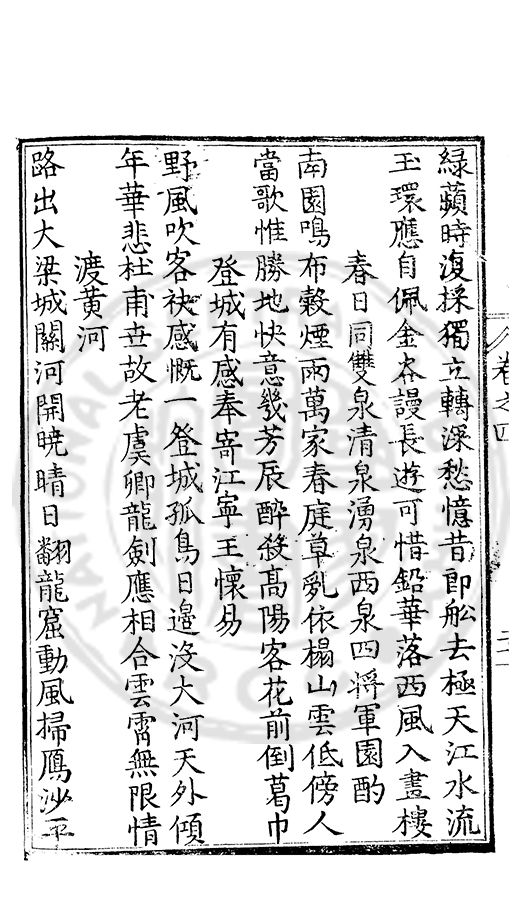 綠蘋時復採獨立轉深愁憶昔郎舩去極天江水流
玉環應自佩金㡳謾長遊可惜鉛華落西風入畫樓
春日同雙泉清泉湧泉西泉四將軍園酌
南園鳴布穀煙雨萬家春庭草亂依榻山雲低傍人
當歌惟勝地快意幾芳辰醉殺高陽客花前倒葛巾
登城有感奉寄江寧王懷易
野風吹客袂感慨一登城孤鳥日邊沒大河天外傾
年華悲杜甫世故老虞卿龍劍應相合雲霄無限情
渡黃河
路出大梁城關河開曉晴日翻龍窟動風掃鴈沙平
卷之四